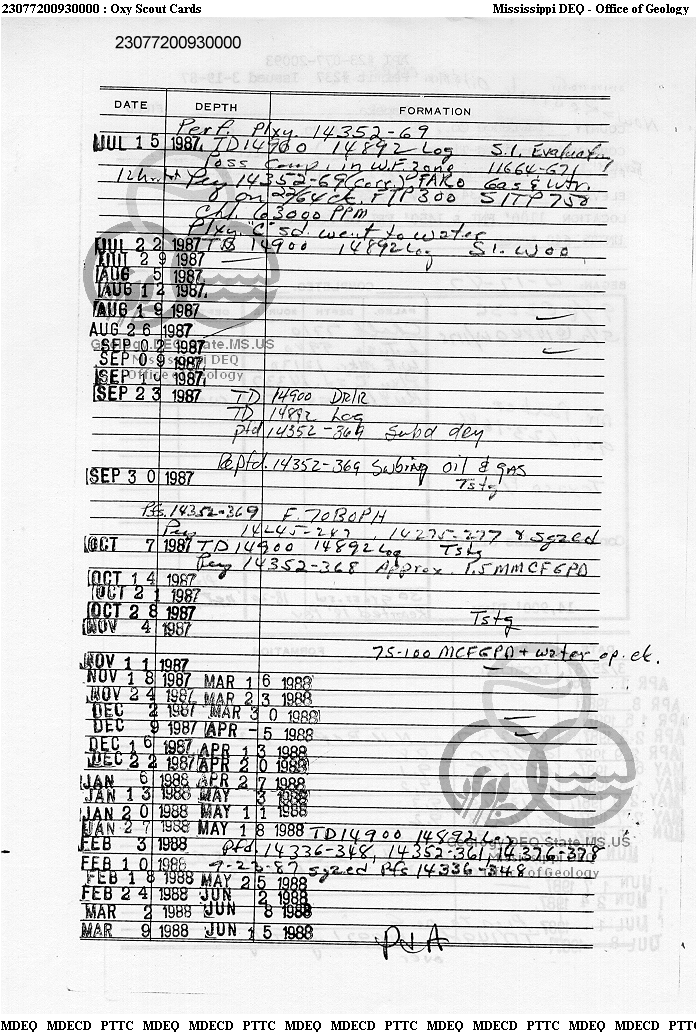 23077200930000 : Oxy Scout Cards Mississippi DEQ - Office of Geology
23077200930000
DATE DEPTH FORMATION
Perf. Plxy. 14352-69
JUL 15 1987 TD 14900 14892 Log S.I. Evaluating
Poss Comp. in W.F. zone 11664-671
Perf 14352-69 (Corr.) FARO Gas & Wtr.
on 22/64 ck. FTP 300 SITP 750
Chl. 63000 PPM
Plxy "C" sd. went to water
JUL 22 1987 TD 14900 14892 Log SI. WOO
JUL 29 1987
AUG 5 1987
AUG 12 1987
AUG 19 1987
AUG 26 1987
Geology.DEQ.State.MS.US
SEP 02 1987
Mississippi DEQ
SEP 09 1987
Office of Geology
SEP 16 1987
SEP 23 1987 TD 14900 DRLR
TD 14892 Log
ptd 14352-369 Swbd dry
Reptd. 14352-369 Swbing oil & gas
SEP 30 1987 Tstg
Pfs. 14352-369 F. 70BOPH
14245-247, 14275-277 & sqzed
OCT 7 1987 TD 14900 14892 Log Tstg
Perf 14352-368 Approx. 1.5 MMCFGPD
OCT 14 1987
OCT 21 1987
OCT 28 1987 Tstg
NOV 4 1987
75-100 MCFGPD + water op. ck.
NOV 11 1987
NOV 18 1987 MAR 16 1988
NOV 24 1987 MAR 23 1988
DEC 2 1987 MAR 30 1988
DEC 9 1987 APR - 5 1988
DEC 16 1987 APR 13 1988
DEC 22 1987 APR 20 1988
JAN 6 1988 APR 27 1988
JAN 13 1988 MAY 3 1988
JAN 20 1988 MAY 11 1988
JAN 27 1988 MAY 18 1988 TD 14900 14892 Log
Geology.DEQ.State.MS.US
FEB 3 1988 Pfd. 14336-348, 14352-361, 14376-378
Mississippi DEQ
FEB 10 1988 9-23-87 sqzed Pfs 14336-348
Office of Geology
FEB 18 1988 MAY 25 1988
FEB 24 1988 JUN 2 1988
MAR 2 1988 JUN 8 1988
MAR 9 1988 JUN 15 1988
P&A
MDEQ MDECD PTTC MDEQ MDECD PTTC MDEQ MDECD PTTC MDEQ MDECD PTTC MDEQ MDECD PTTC